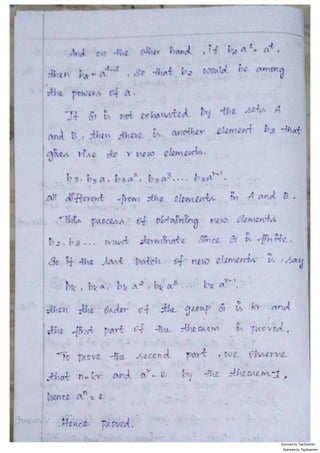 And on the other hand, if b₂a^s = a^t,
then b₂ = a^t-s, so that b₂ would be among
the powers of a.
If G is not exhausted by the sets A
and B, then there is another element b3 that
gives rise to r new elements.
b3, b3a, b3a², b3a³.... b3a^r-1.
all different from the elements in A and B.
This process of obtaining new elements
b2, b3... must terminate since G is finite.
So if the last batch of new elements is, say
bk, bka, bka², bka³ ... bka^r-1.
then the order of the group G is kr and
the first part of the theorem is proved.
To prove the second part, we observe
that n=kr and a^r=e by the theorem-1,
hence a^n = e
Hence proved.
Scanned by TapScanner
Scanned by TapScanner